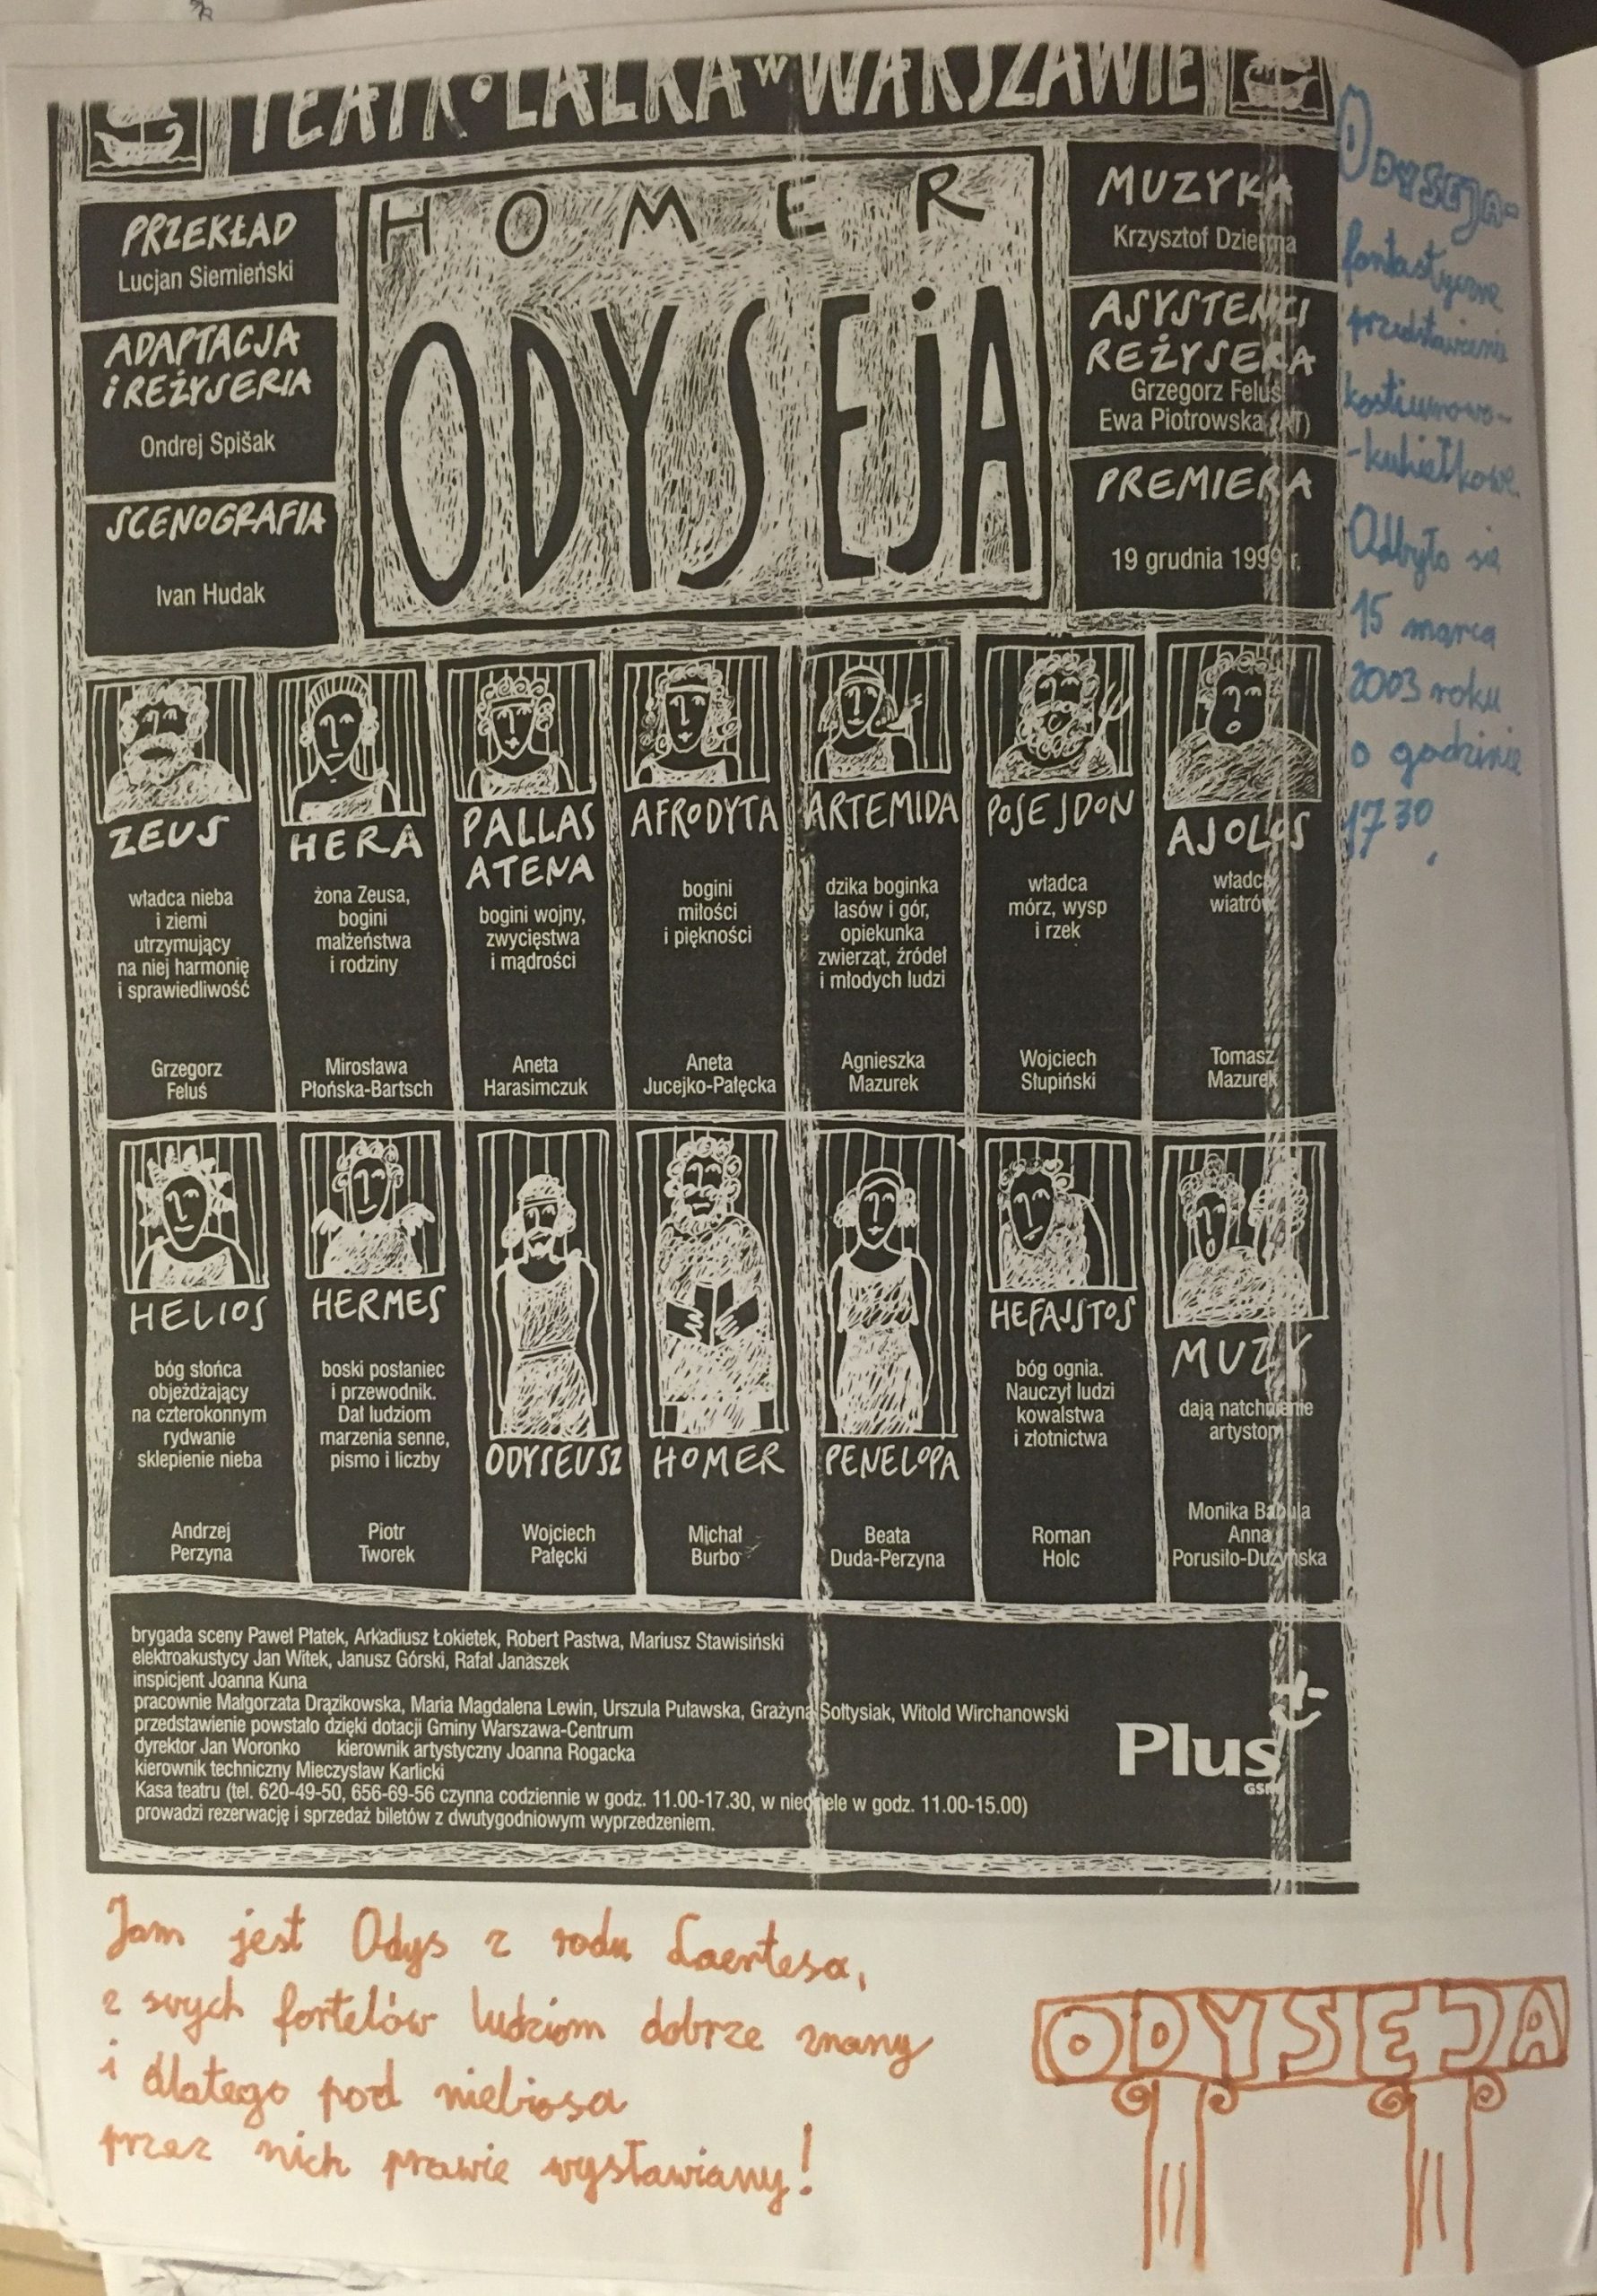 TEATR·LALKA w WARSZAWIE
PRZEKŁAD
Lucjan Siemieński
ADAPTACJA
i REŻYSERIA
Ondrej Spišak
SCENOGRAFIA
Ivan Hudak
HOMER
ODYSEjA
MUZYKA
Krzysztof Dzierma
ASYSTENCI
REŻYSERA
Grzegorz Feluś
Ewa Piotrowska (AT)
PREMIERA
19 grudnia 1999 r.
ZEUS
władca nieba
i ziemi
utrzymujący
na niej harmonię
i sprawiedliwość
Grzegorz
Feluś
HERA
żona Zeusa,
bogini
małżeństwa
i rodziny
Mirosława
Płońska-Bartsch
PALLAS
ATENA
bogini wojny,
zwycięstwa
i mądrości
Aneta
Harasimczuk
AFRODYTA
bogini
miłości
i piękności
Aneta
Jucejko-Pałęcka
ARTEMIDA
dzika boginka
lasów i gór,
opiekunka
zwierząt, źródeł
i młodych ludzi
Agnieszka
Mazurek
POSEJDON
władca
mórz, wysp
i rzek
Wojciech
Słupiński
AJOLOS
władca
wiatrów
Tomasz
Mazurek
HELIOS
bóg słońca
objeżdżający
na czterokonnym
rydwanie
sklepienie nieba
Andrzej
Perzyna
HERMES
boski posłaniec
i przewodnik.
Dał ludziom
marzenia senne,
pismo i liczby
Piotr
Tworek
ODYSEUSZ
Wojciech
Pałęcki
HOMER
Michał
Burbo
PENELOPA
Beata
Duda-Perzyna
HEFAJSTOS
bóg ognia.
Nauczył ludzi
kowalstwa
i złotnictwa
Roman
Holc
MUZY
dają natchnienie
artystom
Monika Babula
Anna
Porusiło-Dużyńska
brygada sceny Paweł Płatek, Arkadiusz Łokietek, Robert Pastwa, Mariusz Stawisiński
elektroakustycy Jan Witek, Janusz Górski, Rafał Janaszek
inspicjent Joanna Kuna
pracownie Małgorzata Drązikowska, Maria Magdalena Lewin, Urszula Puławska, Grażyna Sołtysiak, Witold Wirchanowski
przedstawienie powstało dzięki dotacji Gminy Warszawa-Centrum
dyrektor Jan Woronko kierownik artystyczny Joanna Rogacka
kierownik techniczny Mieczysław Karlicki
Kasa teatru (tel. 620-49-50, 656-69-56 czynna codziennie w godz. 11.00-17.30, w niedziele w godz. 11.00-15.00)
prowadzi rezerwację i sprzedaż biletów z dwutygodniowym wyprzedzeniem.
Plus
GSM
ODYSEJA-
fantastyczne
przedstawienie
kostiumowo-
-kukiełkowe.
Odbyło się
15 marca
2003 roku
o godzinie
17 30.
Jam jest Odys z rodu Laertesa,
z swych fortelów ludziom dobrze znany
i dlatego pod niebiosa
przez nich prawie wystawiany!
ODYSEJA